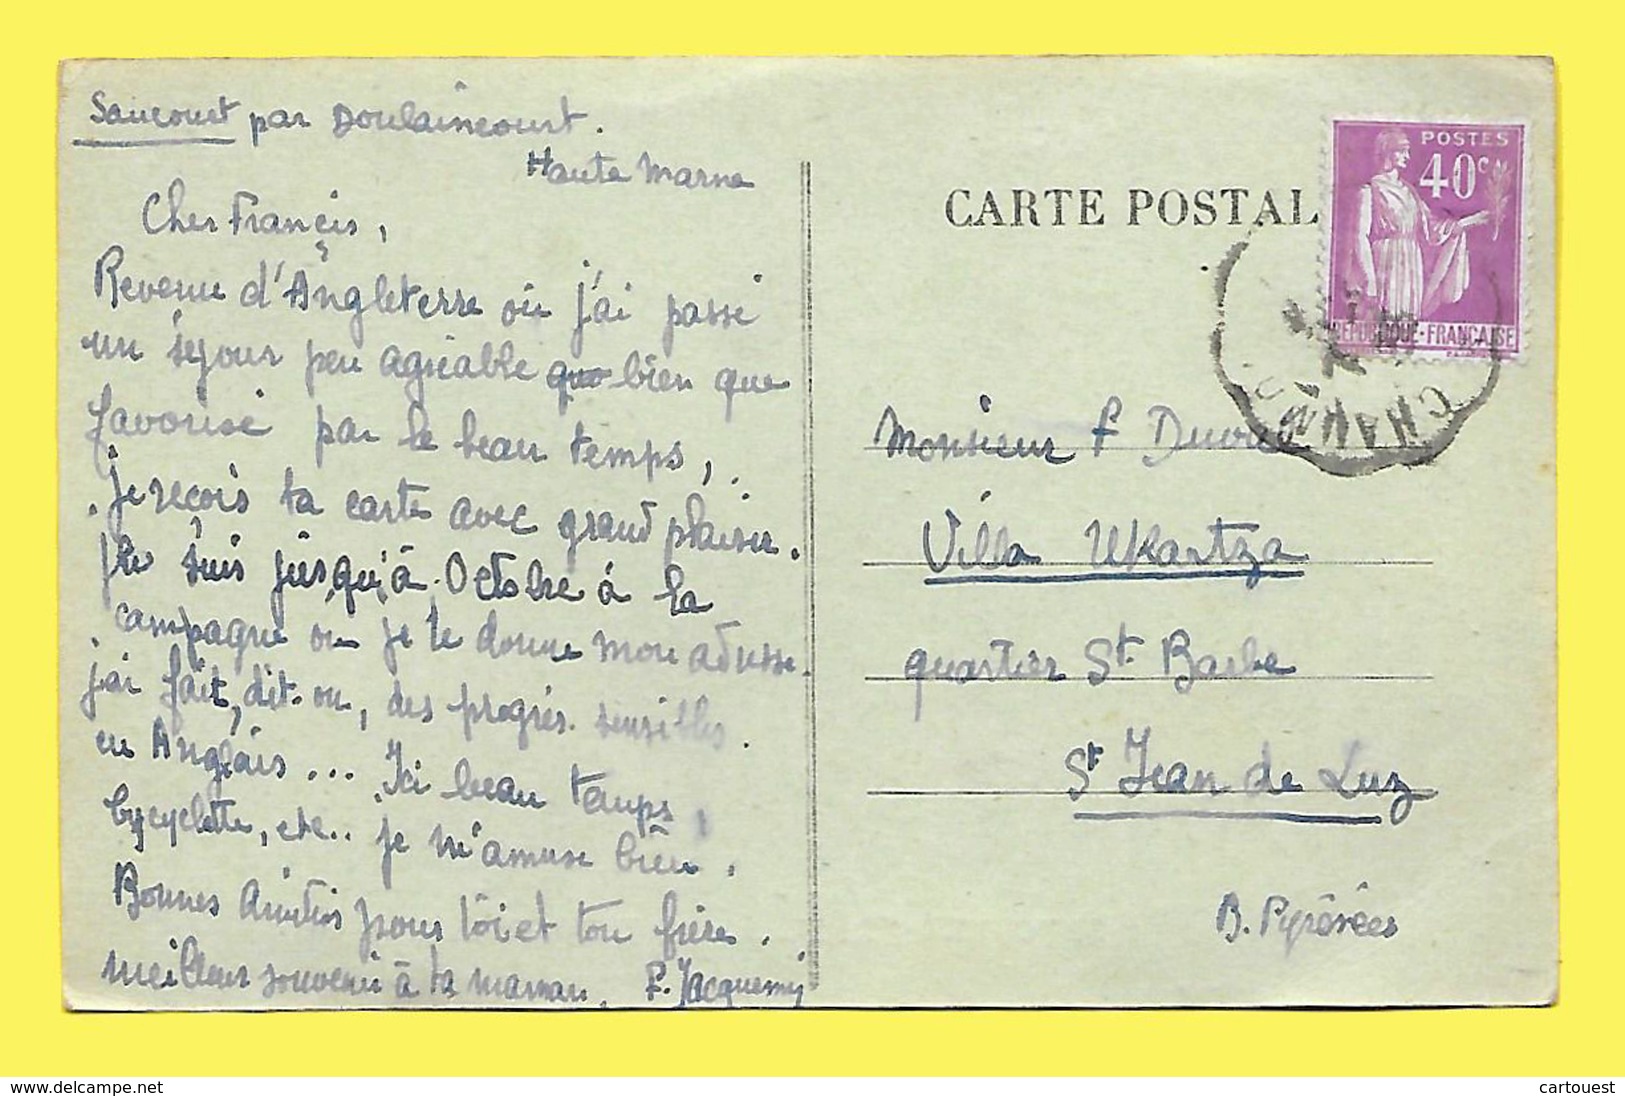 Saucourt par Doulaincourt.
Haute Marne
Cher Francis,
Revenu d'Angleterre où j'ai passé
un séjour peu agréable bien que
favorisé par le beau temps,
je reçois ta carte avec grand plaisir.
Je suis jusqu'à Octobre à la
campagne où je te donne mon adresse.
j'ai fait, dit-on, des progrès sensibles
en Anglais... Ici beau temps,
bycyclette, etc.. je m'amuse bien.
Bonnes Amitiés pour toi et ton frère.
meilleur souvenir à ta maman. F. Jacquemy
CARTE POSTAL
POSTES
40c
REPUBLIQUE-FRANÇAISE
CHAUM
Monsieur F
Villa UKartza
quartier St Barbe
St Jean de Luz
B. Pyrénées
www.delcampe.net
cartouest